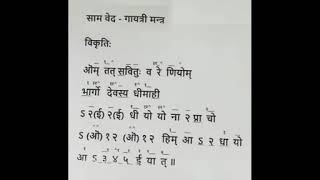 साम वेद - गायत्री मन्त्र
विकृतिः
ओम् तत् सवितुः व रे णियोम्
भार्गो देवस्य धीमाही
ऽ २(ई) २(ई) धी यो यो ना २ प्रा चो
ऽ (ओ) १ २ (ओ) १ २ हिम् आ ऽ २ धा यो
आ ऽ ३ ४ ५ ई या त् ॥